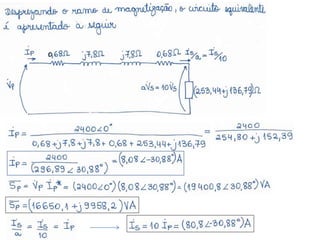 Desprezando o ramo de magnetização, o circuito equivalente
é apresentado a seguir
İp 0,68Ω j7,8Ω j7,8Ω 0,68Ω İs/a = İs/10
V̇p
aV̇s = 10V̇s
(253,44+j136,79)Ω
İp = 2400∠0° / 0,68+j7,8+j7,8+0,68+253,44+j136,79 = 2400 / 254,80+j152,39
İp = 2400 / (296,89∠30,88°) = (8,08∠-30,88°)A
S̄p = V̇p İp* = (2400∠0°)(8,08∠30,88°) = (19400,8∠30,88°)VA
S̄p = (16650,1+j9958,2)VA
İs/a = İs/10 = İp → İs = 10 İp = (80,8∠-30,88°)A